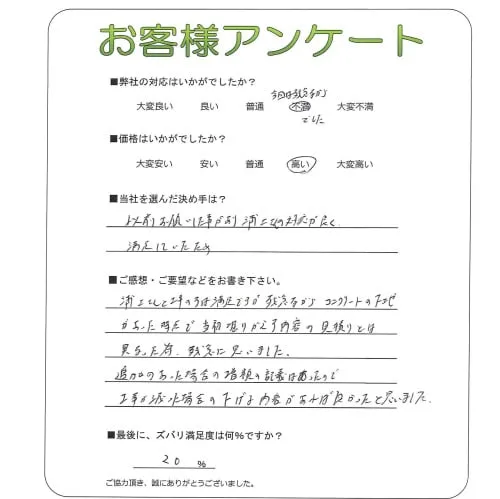 お客様アンケート
■弊社の対応はいかがでしたか？
今回は残念ながら
大変良い 良い 普通 不満 大変不満
でした
■価格はいかがでしたか？
大変安い 安い 普通 高い 大変高い
■当社を選んだ決め手は？
以前お願いした事があり 浦上さんの対応が良く、
満足していたため
■ご感想・ご要望などをお書き下さい。
浦上さんと工事の方は満足ですが 残念ながら コンクリートの下地
があった時点で当初 掘りから 内容の見積りとは
異なった為、残念に思いました。
追加のあった場合の増額の記載はあったので
工事が減った場合の下げる内容があれば良かったと思いました。
■最後に、ズバリ満足度は何％ですか？
20 ％
ご協力頂き、誠にありがとうございました。